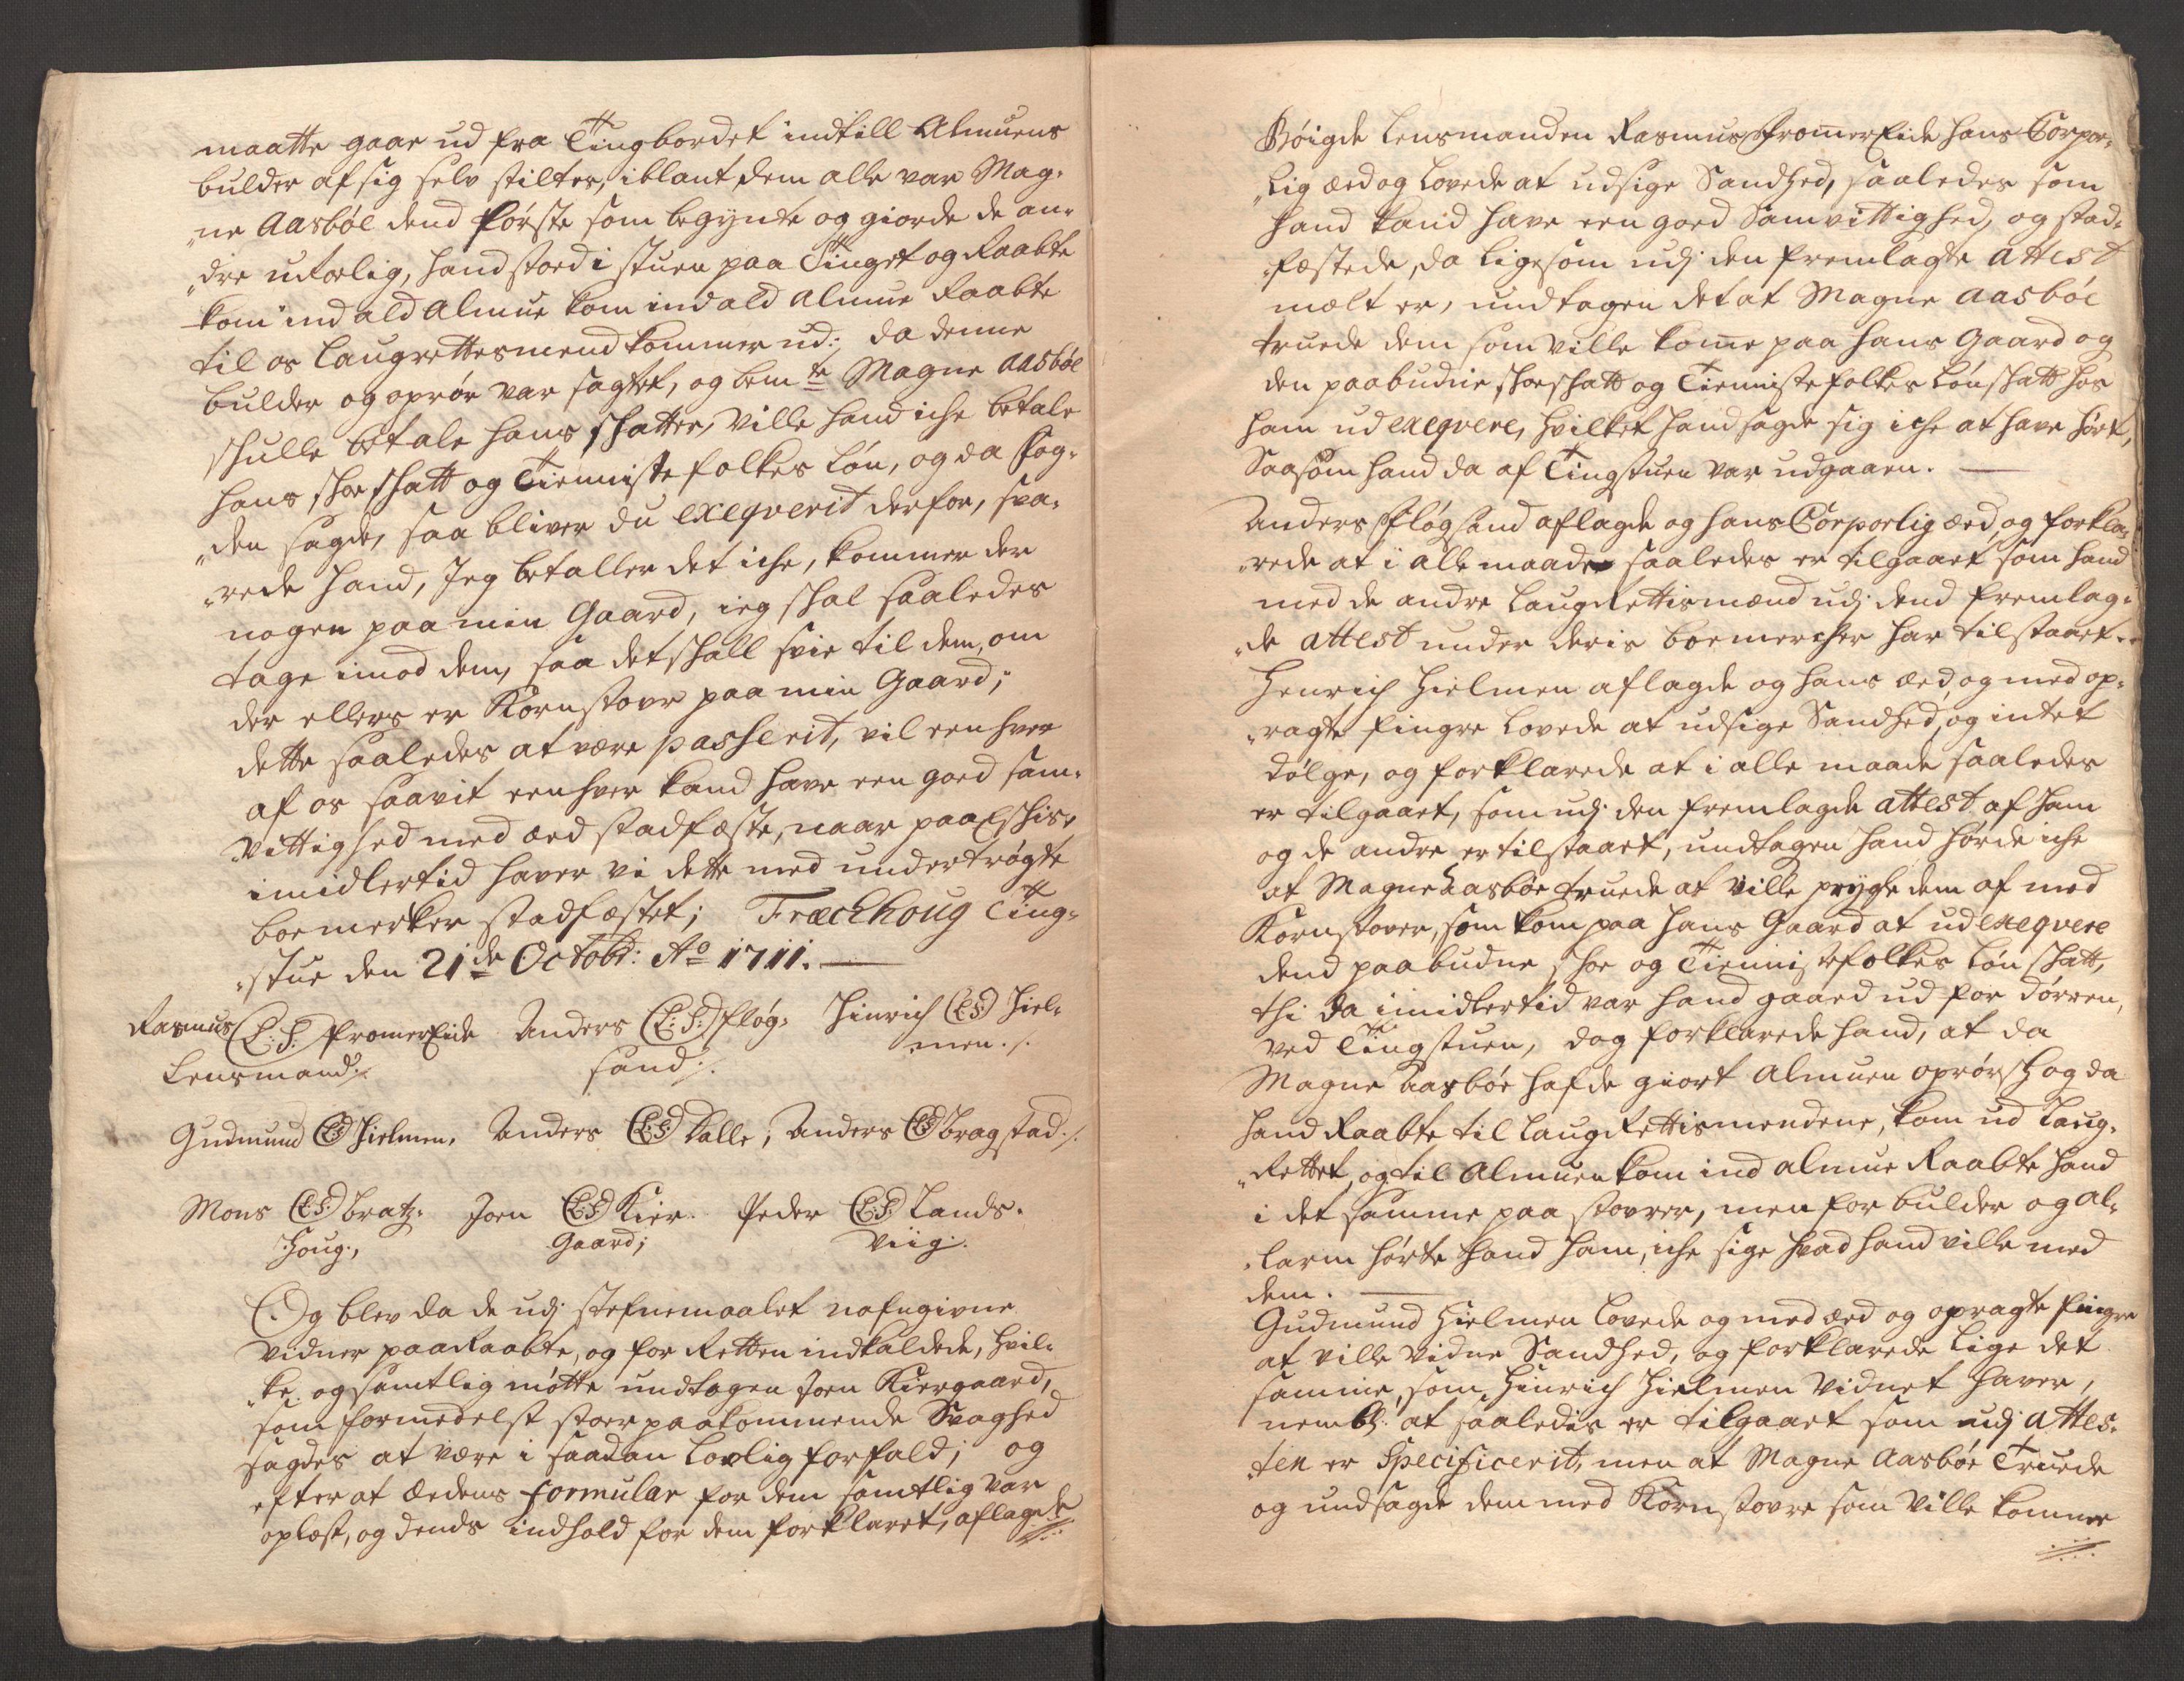 maatte gaar ud fra Tingbordet indtill Almuens
bulder af sig selv stiltes, iblant dem alle var Mag,
„ne Aasböe dend förste som begynte og giorde de an,
„dre urolig, hand stoed i stuen paa Tinget og Raabte
kom ind ald Almue kom ind ald Almue Raabte
til os Laugrettesmend kommer ud; da denne
bulder og oprör var sagtet, og bemte Magne Aasböe
schulle betale hans schatter, ville hand iche betale
hans schoe schatt og Tienniste folkes lön, og da fog,
„den sagde, saa bliver du exeqverit derfor, sva,
„rede hand, Jeg betaller det iche, kommer der
nogen paa min Gaard, ieg schal saaledes
tage imod dem, saa det schall svie til dem, om
der ellers er Kornstour paa min Gaard;
dette saaledes at være passerit, vil een hver
af os saavit een hver kand have een goed sam,
vittighed med æd stadfæste, naar paaeschis,
imidlertid haver vi dette med undertrögte
boemerker stadfæstet; Fræchhoug Ting,
„stue den 21de Octobr: Ao 1711.
Rasmus (L:S:) FromerEide Anders (L:S:) Flög, Hinrich (LS) Hiel,
Lensmand ⁒ sand ⁒ men ./.
Gudmund (LS) Hielmen, Anders (LS) Kalle; Anders (LS) bragstad ./.
Mons (LS) bratz, Joen (LS) Kier, Peder (LS) Lands,
houg, Gaard; viig.
Og blev da de udj stefnemaalet nafngivne
vidner paaRaabte, og for Retten indkaldede, hvil,
„ke og samtlig mötte undtagen Joen Kiergaard,
som formedelst stoer paakommende Svaghed
sagdes at være i saadan lovlig forfald; og
efter at Eedens formular for dem samtlig var
oplæst, og dends indhold for dem forklaret, aflagde
Böigde Lensmanden Rasmus FromerEide hans Corpor,
„lig æd og lovede at udsige Sandhed, saaledes som
hand kand have een goed Samvittighed, og stad,
„fæstede, da ligesom udj den fremlagte attest
mælt er, undtagen det at Magne Aasböe
truede dem som ville kome paa hans Gaard og
den paabudne schoeschatt og Tiennistefolkes Lönschatt hos
ham ud exeqvere, hvilket hand sagde sig iche at have hört,
Saasom hand da af Tingstuen var udgaaen.
Anders Flögsand aflagde og hans Corporlig æd, og forkla,
„rede at i alle maader saaledes er tilgaaet som hand
med de andre LaugRettismænd udj dend fremlag,
„de attest under deris boemercher har tilstaaet.
Henrich Hielmen aflagde og hans æd, og med op,
„ragte fingre lovede at udsige Sandhed, og intet
dölge, og forklarede at i alle maade saaledes
er tilgaaet, som udj den fremlagde attest af ham
og de andre er tilstaaet, undtagen hand hörde iche
at Magne Aasböe truede at ville prygle dem af med
Kornstover, som kom paa hans Gaard at ud exeqvere
dend paabudne schoe og Tiennistefolkes lön schatt,
thi da imidlertid var hand gaaed ud for dörren,
ved Tingstuen, dog forklarede hand, at da
Magne Aasböe hafde giort Almuen oprörsch og da
hand Raabte til LaugRettismendene, kom ud Laug,
„Rettet, og til Almuen kom ind Almue Raabte hand
i det samme paa stovrer, men for bulder og al,
„larm hörte hand ham, iche sige hvad hand ville med
dem.
Gudmund Hielmen lovede og med æd og opragte fingre
at ville vidne Sandhed, og forklarede lige det
samme, som Hinrich Hielmen vidnet haver,
nembl: at saaledis er tilgaaet som udj attes,
„ten er Specificerit, men at Magne Aasböe Truede
og undsagde dem med Kornstovre som ville komme